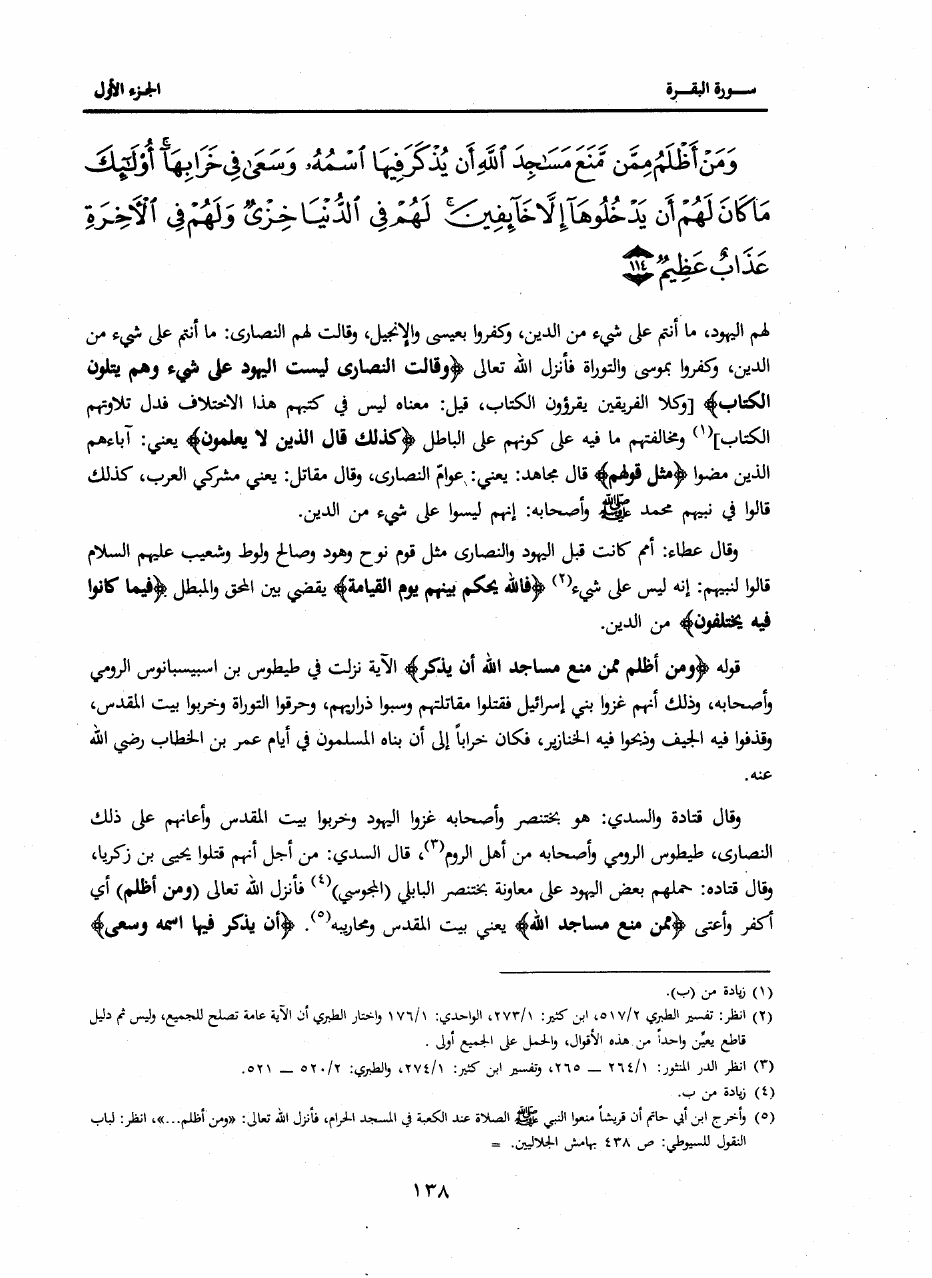 سورة البقرة
الجزء الأول
وَمَنْ أَظْلَمُ مِمَّن مَّنَعَ مَسَاجِدَ ٱللَّهِ أَن يُذْكَرَ فِيهَا ٱسْمُهُۥ وَسَعَىٰ فِي خَرَابِهَآ ۚ أُو۟لَٰٓئِكَ
مَا كَانَ لَهُمْ أَن يَدْخُلُوهَآ إِلَّا خَآئِفِينَ ۚ لَهُمْ فِي ٱلدُّنْيَا خِزْيٌ وَلَهُمْ فِي ٱلْآخِرَةِ
عَذَابٌ عَظِيمٌ ١١٤
لهم اليهود، ما أنتم على شيء من الدين، وكفروا بعيسى والإنجيل، وقالت لهم النصارى: ما أنتم على شيء من
الدين، وكفروا بموسى والتوراة فأنزل الله تعالى ﴿وقالت النصارى ليست اليهود على شيء وهم يتلون
الكتاب﴾ [وكلا الفريقين يقرؤون الكتاب، قيل: معناه ليس في كتبهم هذا الاختلاف فدل تلاوتهم
الكتاب](١) ومخالفتهم ما فيه على كونهم على الباطل ﴿كذلك قال الذين لا يعلمون﴾ يعني: آباءهم
الذين مضوا ﴿مثل قولهم﴾ قال مجاهد: يعني: عوامّ النصارى، وقال مقاتل: يعني مشركي العرب، كذلك
قالوا في نبيهم محمد ﷺ وأصحابه: إنهم ليسوا على شيء من الدين.
وقال عطاء: أمم كانت قبل اليهود والنصارى مثل قوم نوح وهود وصالح ولوط وشعيب عليهم السلام
قالوا لنبيهم: إنه ليس على شيء(٢) ﴿فالله يحكم بينهم يوم القيامة﴾ يقضي بين المحق والمبطل ﴿فيما كانوا
فيه يختلفون﴾ من الدين.
قوله ﴿ومن أظلم ممن منع مساجد الله أن يذكر﴾ الآية نزلت في طيطوس بن اسبيسبانوس الرومي
وأصحابه، وذلك أنهم غزوا بني إسرائيل فقتلوا مقاتلتهم وسبوا ذراريهم، وحرقوا التوراة وخربوا بيت المقدس،
وقذفوا فيه الجيف وذبحوا فيه الخنازير، فكان خراباً إلى أن بناه المسلمون في أيام عمر بن الخطاب رضي الله
عنه.
وقال قتادة والسدي: هو بختنصر وأصحابه غزوا اليهود وخربوا بيت المقدس وأعانهم على ذلك
النصارى، طيطوس الرومي وأصحابه من أهل الروم(٣)، قال السدي: من أجل أنهم قتلوا يحيى بن زكريا،
وقال قتاده: حملهم بعض اليهود على معاونة بختنصر البابلي (المجوسي)(٤) فأنزل الله تعالى (ومن أظلم) أي
أكفر وأعتى ﴿ممن منع مساجد الله﴾ يعني بيت المقدس ومحاريبه(٥). ﴿أن يذكر فيها اسمه وسعى﴾
(١) زيادة من (ب).
(٢) انظر: تفسير الطبري ٥١٧/٢، ابن كثير: ٢٧٣/١، الواحدي: ١٧٦/١ واختار الطبري أن الآية عامة تصلح للجميع، وليس ثم دليل
قاطع يعيِّن واحداً من هذه الأقوال، والحمل على الجميع أولى .
(٣) انظر الدر المنثور: ٢٦٤/١ ــ ٢٦٥، وتفسير ابن كثير: ٢٧٤/١، والطبري: ٥٢٠/٢ ــ ٥٢١.
(٤) زيادة من ب.
(٥) وأخرج ابن أبي حاتم أن قريشاً منعوا النبي ﷺ الصلاة عند الكعبة في المسجد الحرام، فأنزل الله تعالى: «ومن أظلم...»، انظر: لباب
النقول للسيوطي: ص ٤٣٨ بهامش الجلاليين. =
١٣٨